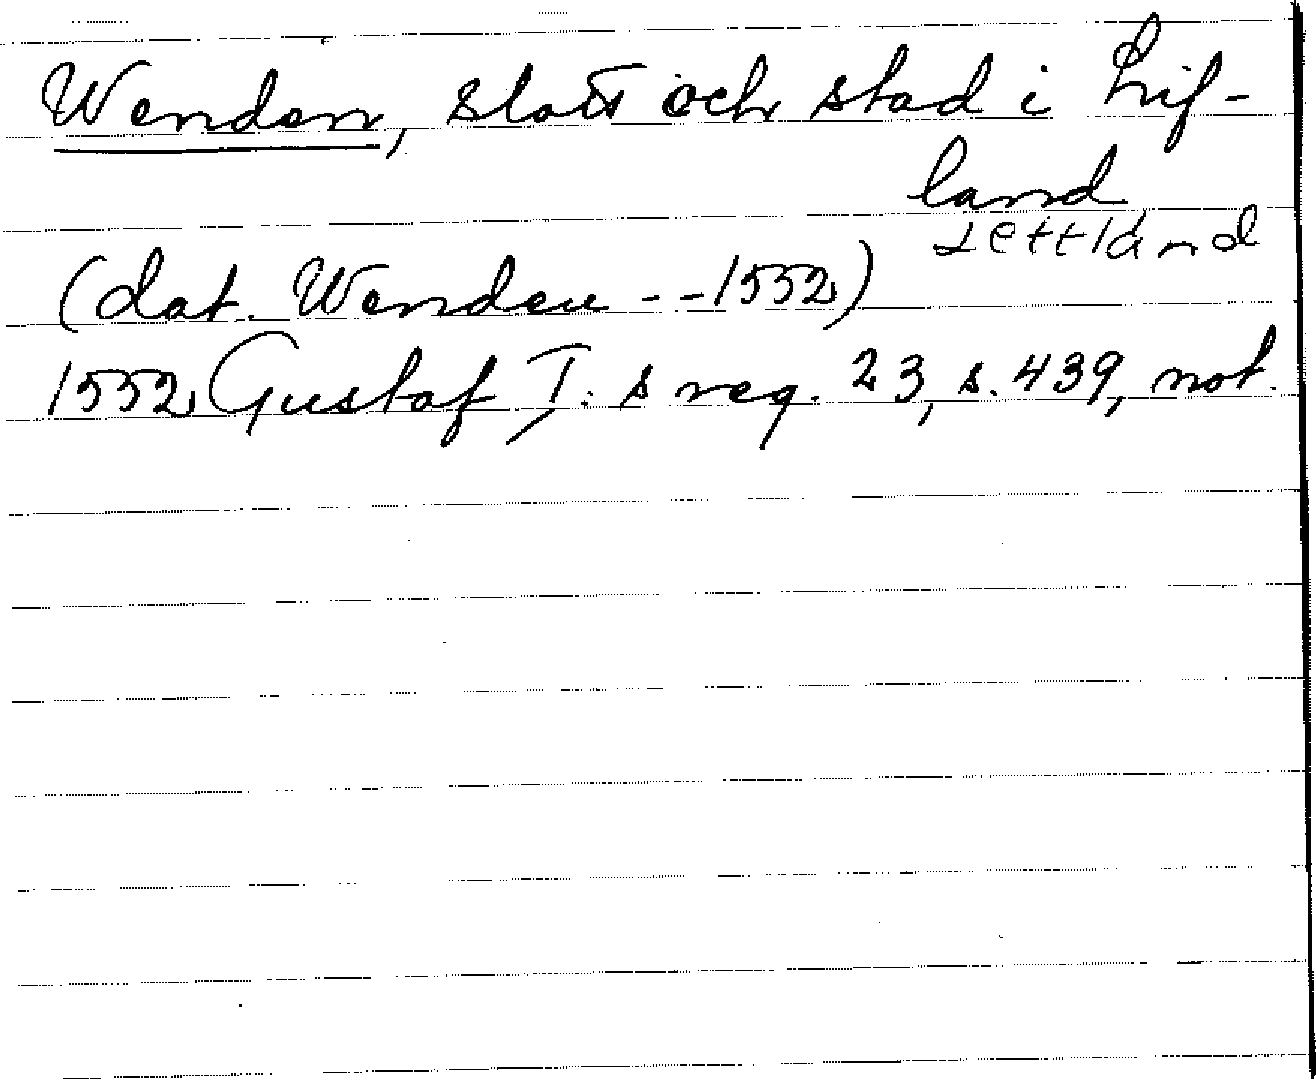 Wenden, slott och stad i Lif-
land
Lettland
(dat. Wenden - - 1552)
1552 Gustaf I:s reg. 23, s. 439, not.